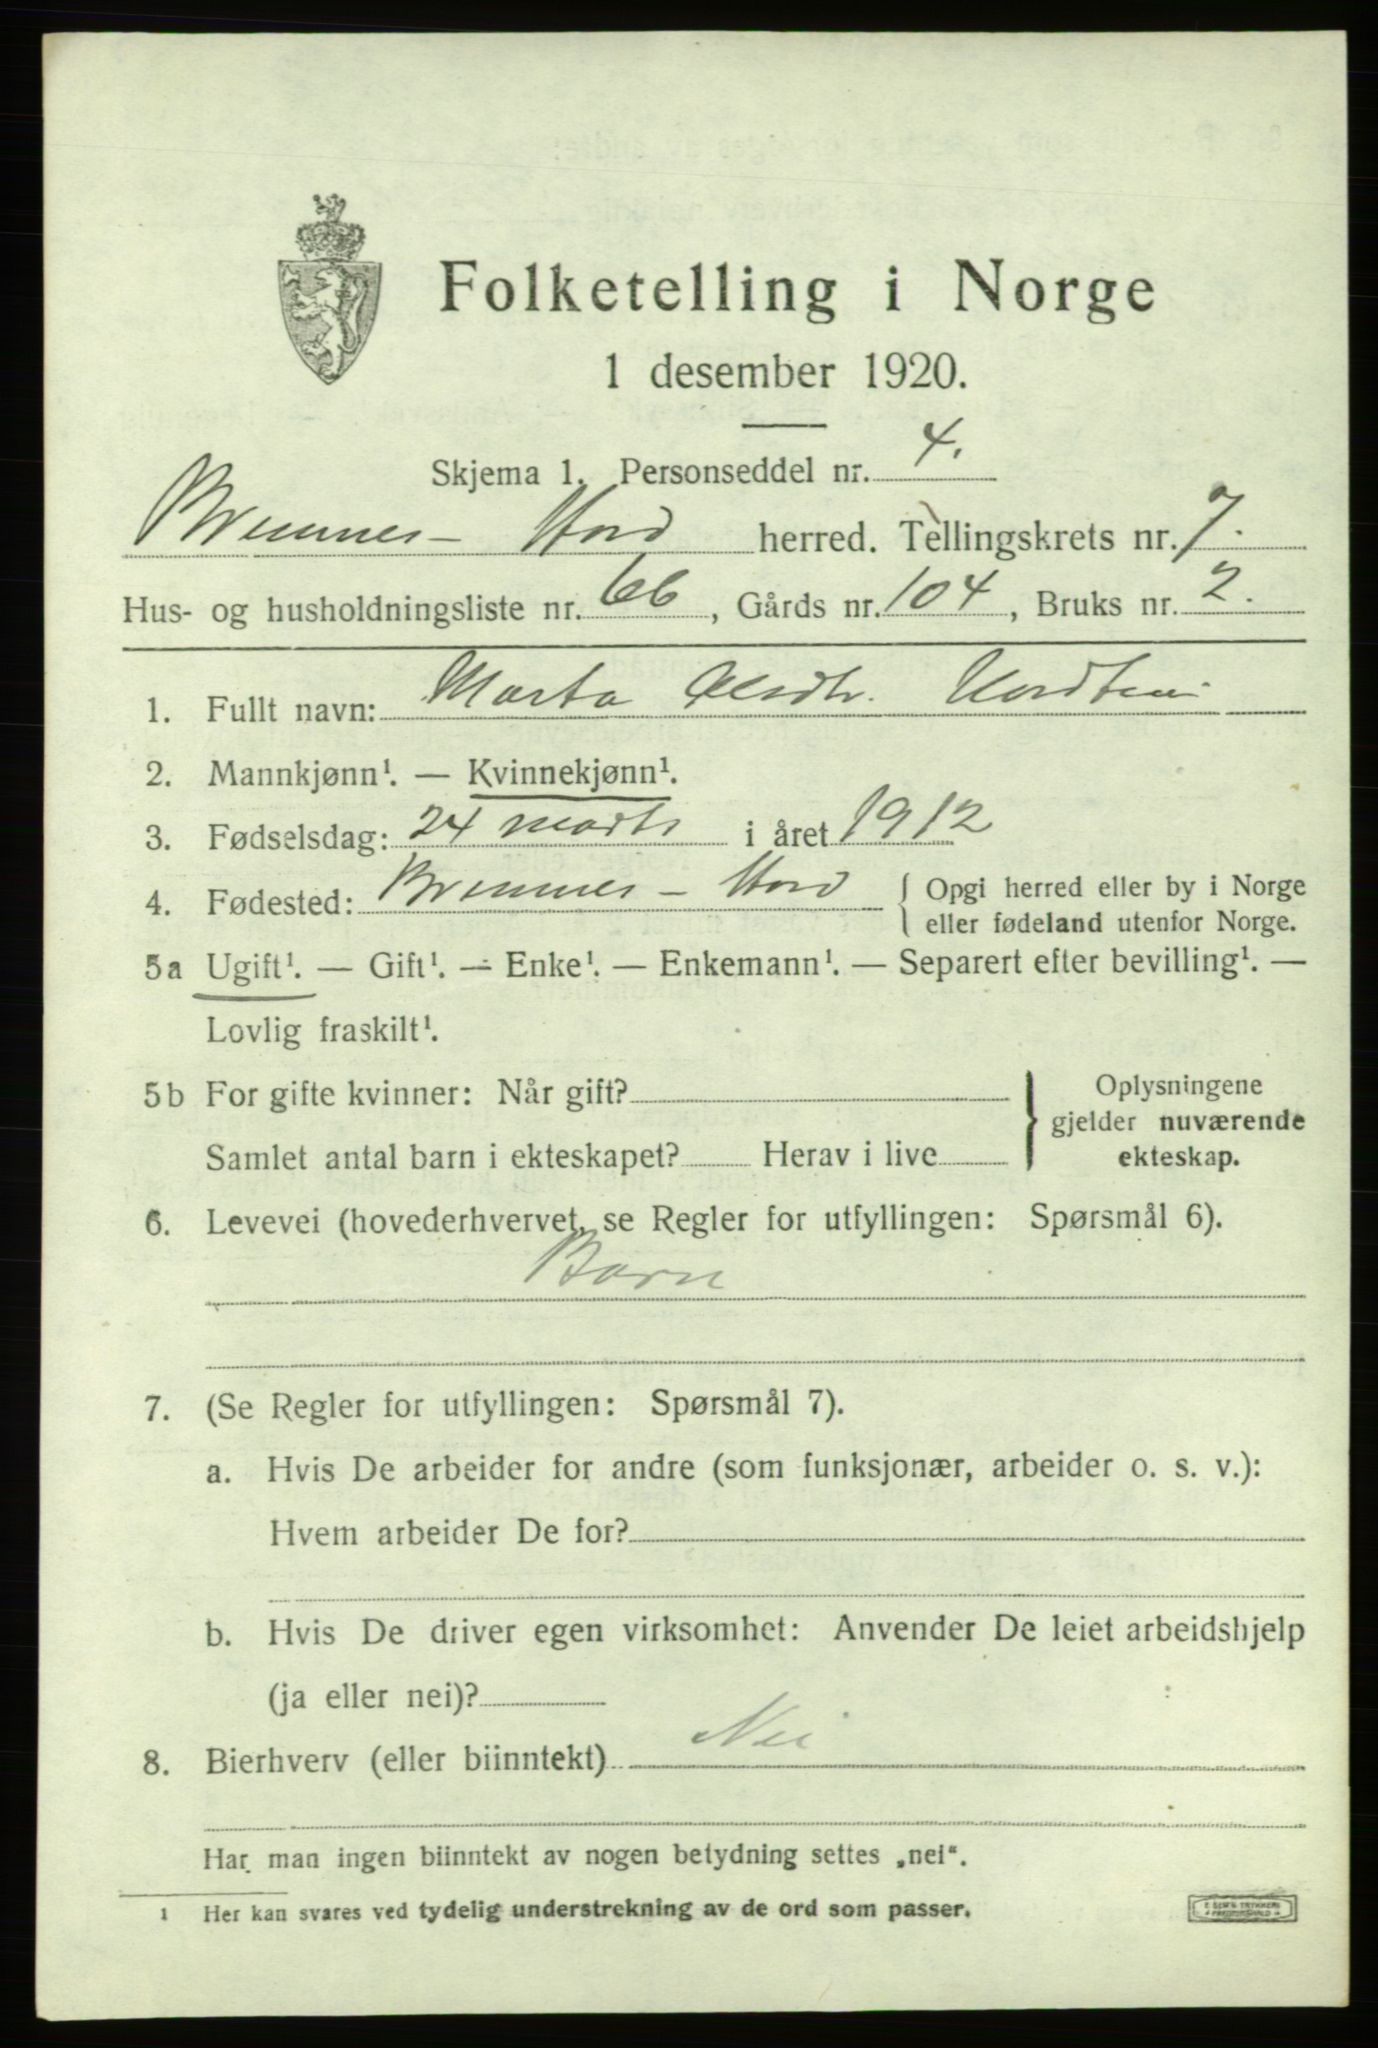 Folketelling i Norge
1 desember 1920.
Skjema 1. Personseddel nr. 4.
Bremnes - Stord herred. Tellingskrets nr. 7.
Hus- og husholdningsliste nr. 66, Gårds nr. 104, Bruks nr. 2.
1. Fullt navn: Marta Olsdtr.
2. Mannkjønn¹. — Kvinnekjønn¹.
3. Fødselsdag: 24 marts i året 1912
4. Fødested: Bremnes - Stord { Opgi herred eller by i Norge
eller fødeland utenfor Norge.
5a Ugift¹. — Gift¹. — Enke¹. — Enkemann¹. — Separert efter bevilling¹. —
Lovlig fraskilt¹.
5b For gifte kvinner: Når gift?
Samlet antal barn i ekteskapet? Herav i live
} Oplysningene
gjelder nuværende
ekteskap.
6. Levevei (hovederhvervet, se Regler for utfyllingen: Spørsmål 6).
Barn
7. (Se Regler for utfyllingen: Spørsmål 7).
a. Hvis De arbeider for andre (som funksjonær, arbeider o. s. v.):
Hvem arbeider De for?
b. Hvis De driver egen virksomhet: Anvender De leiet arbeidshjelp
(ja eller nei)?
8. Bierhverv (eller biinntekt) Nei
Har man ingen biinntekt av nogen betydning settes „nei“.
1 Her kan svares ved tydelig understrekning av de ord som passer.